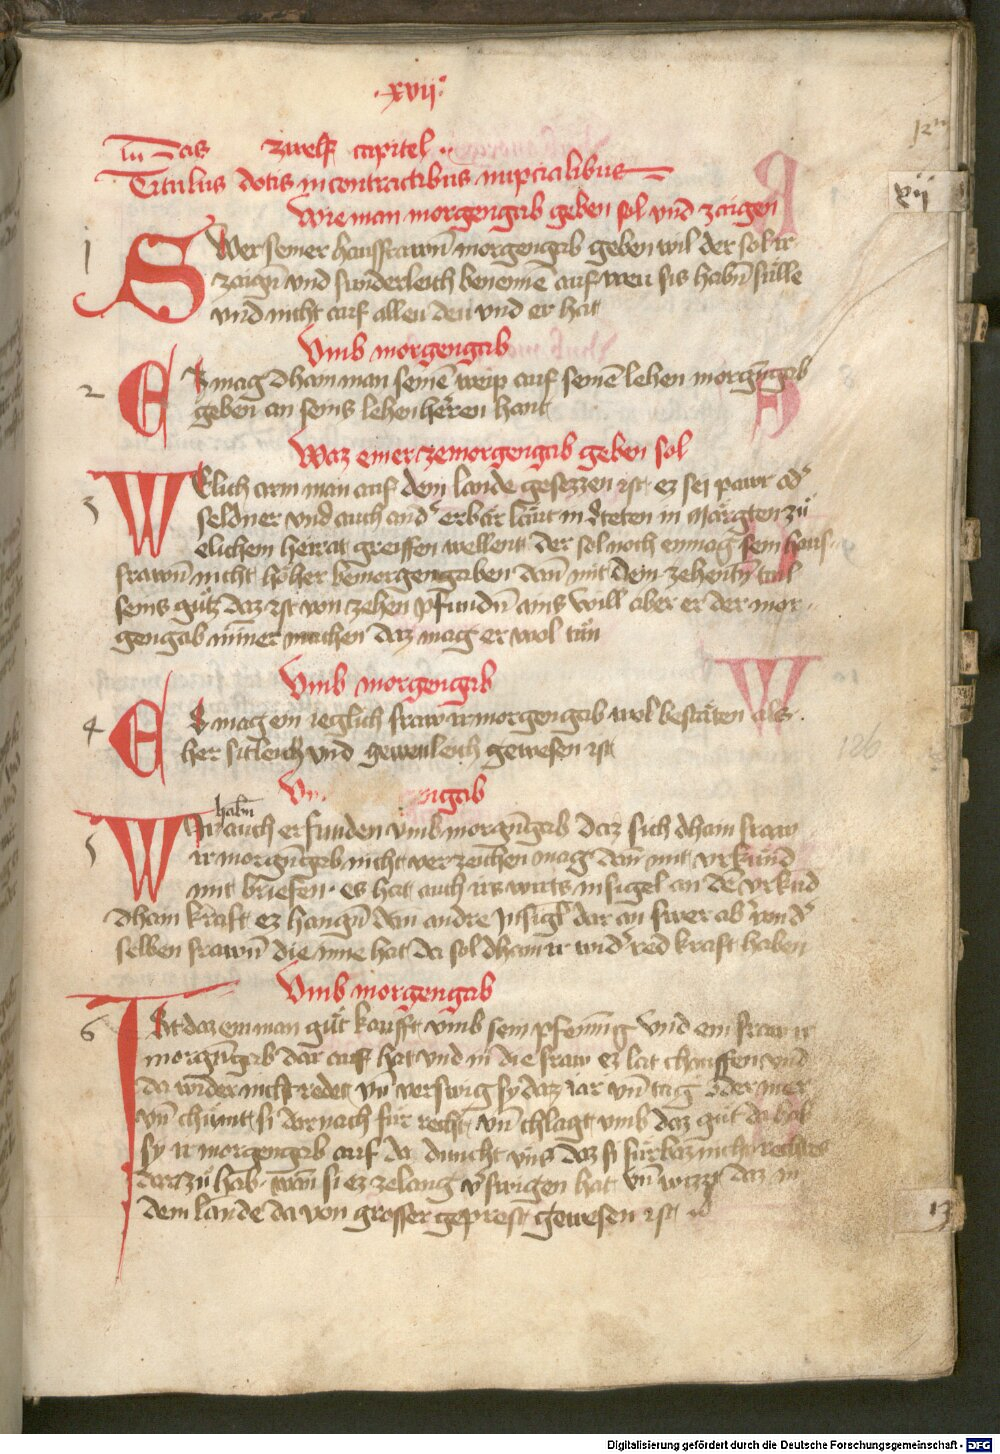 ·xvij·
12
Das zwelf capitel
Titulus dotis in contractibus nupcialibus
xij
Wie man morgengab geben sol vnd zaigen
1 SWer seiner hausfrawn̄ morgengab geben wil der sol ir
zaign̄ vnd sunderleich benennē auf weu sis habn̄ sulle
vnd nicht auf allen den vnd er hat
Vmb morgengab
2 ES mag dhain man seinē weip auf seinē lehen morgn̄gab
geben an seins lehenherren hant
Waz einer ze morgengab geben sol
3 WElich arm man auf dem lande gesezzen ist ez sei pawr od'
seldner vnd auch and' erbär läut in steten in märgten zu
elichem heirat greiffen wellent der sol noch enmag sein haus
frawn̄ nicht höher bemorgengaben dan̄ mit dem zehentn̄ tail
seins gutz daz ist von zehen pfundn̄ ains Will aber er der mor
gengab mīner machen daz mag er wol tun
Vmb morgengab
4 ES mag ein ieglich fraw ir morgengab wol bestäten als
her sitleich vnd gewonleich gewesen ist
126
ngab
habn̄
5 WIr auch erfunden vmb morgn̄gab daz sich dhain fraw
ir morgn̄gab nicht verzeichen mag dan̄ mit vrkund
mit briefen · es hat auch irs wirts insigel an dē vrkūd
dhain kraft ez hangn̄ dan andre Insigl dar an swer ab' von d'
selben frawn̄ die inne hat da sol dhain ir wid'red kraft haben
Vmb morgengab
6 ISt daz ein man gut kaufft vmb sein pfenning vnd ein fraw ir
morgn̄gab dar auf hat vnd in die fraw ez lat chauffen vnd
da wider nicht redet vn̄ verswig sy daz iar vn̄ tag oder mer
vn̄ chumt si darnach für recht vn̄ chlagt vmb daz gut da hab
sy ir morgengab auf da dunckt vns daz si fürbaz nicht rechtes
dar zu hab · wan̄ si ez ze lang v'swigen hat vn̄ wizz daz in
dem lande da von grosser geprest gewesen ist
13
Digitalisierung gefördert durch die Deutsche Forschungsgemeinschaft - DFG